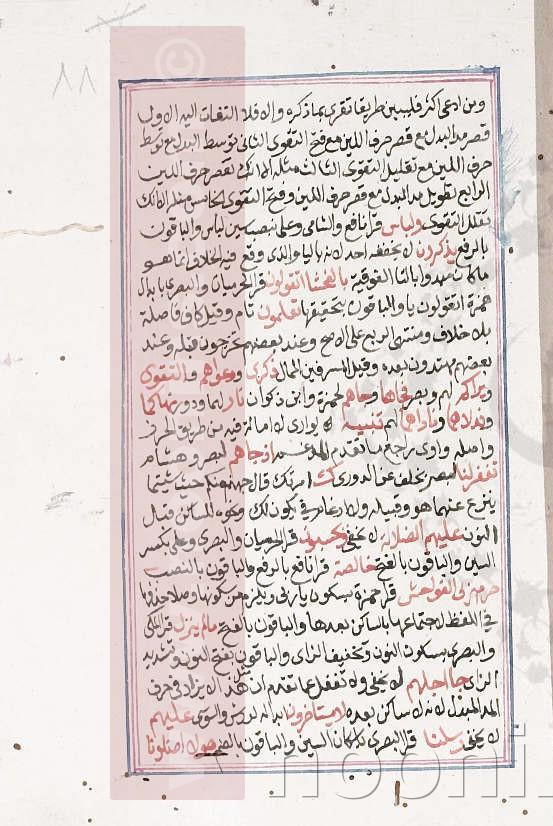 ٨٨
ومن ادعى اكثر فليبين طريقا تقرى بما ذكره والا فلا التفات اليه الاول
قصر مد البدل مع قصر حرف اللين مع فتح التقوى الثاني توسط البدل مع توسط
حرف اللين مع تقليل التقوى الثالث مثله الا انك تقصر حرف اللين
الرابع تطويل مد البدل مع قصر حرف اللين وفتح التقوى الخامس مثله الا انك
تقلل التقوى ولباس قرا نافع والشامي وعلي بنصب سين لباس والباقون
بالرفع يذكرون لا يخففه احد لانه باليا والذي وقع فيه الخلاف انما هو
ما كان مبدوا بالتا الفوقية بالفحشا اتقولون قرا الحرميان والبصري بابدال
همزة اتقولون يا والباقون بتحقيقها تعلمون تام وقيل كاف فاصلة
بلا خلاف ومنتهى الربع على الاصح وعند بعضهم تخرجون قبله وعند
بعضهم مهتدون بعده وقيل المسرفين الممال ذكرى ودعواهم والتقوى
ويراكم لهم وبصر فجاها وجاهم لحمزة وابن ذكوان نار لهما ودوري نهاكما
وفدلاهما وناداهما لهم تنبيه لا يواري لا امالة فيه من طريق الحرز
واصله واوى رجع ما تقدم المدغم اذ جاهم لبصر وهشام
تغفر لنا لبصر بخلف عن الدوري ك امرتك قال جهنم منكم حيث شيتما
ينزع عنهما هو وقبيله ولا ادغام في يكون لك ونحوه لسكون ما قبل
النون عليهم الضلالة لا يخفى ويحسبون قرا الحرميان والبصري وعلي بكسر
السين والباقون بالفتح خالصة قرا نافع بالرفع والباقون بالنصب
حرم ربي الفواحش قرا حمزة بسكون يا ربي ويلزم من سكونها وصلا حذفها
في اللفظ لاجتماعها بالساكن بعدها والباقون بالفتح ما لم ينزل قرا المكي
والبصري بسكون النون وتخفيف الزاي والباقون بفتح النون وتشديد
الزاي جا اجلهم لا يخفى ولا تغفل عما تقدم ان هذا لا يزاد في حرف
المد المبدل لانه لا ساكن بعده لا يستاخرون ابداله لورش والسوسي عليهم
لا يخفى رسلنا قرا البصري باسكان السين والباقون بالضم هولا اضلونا